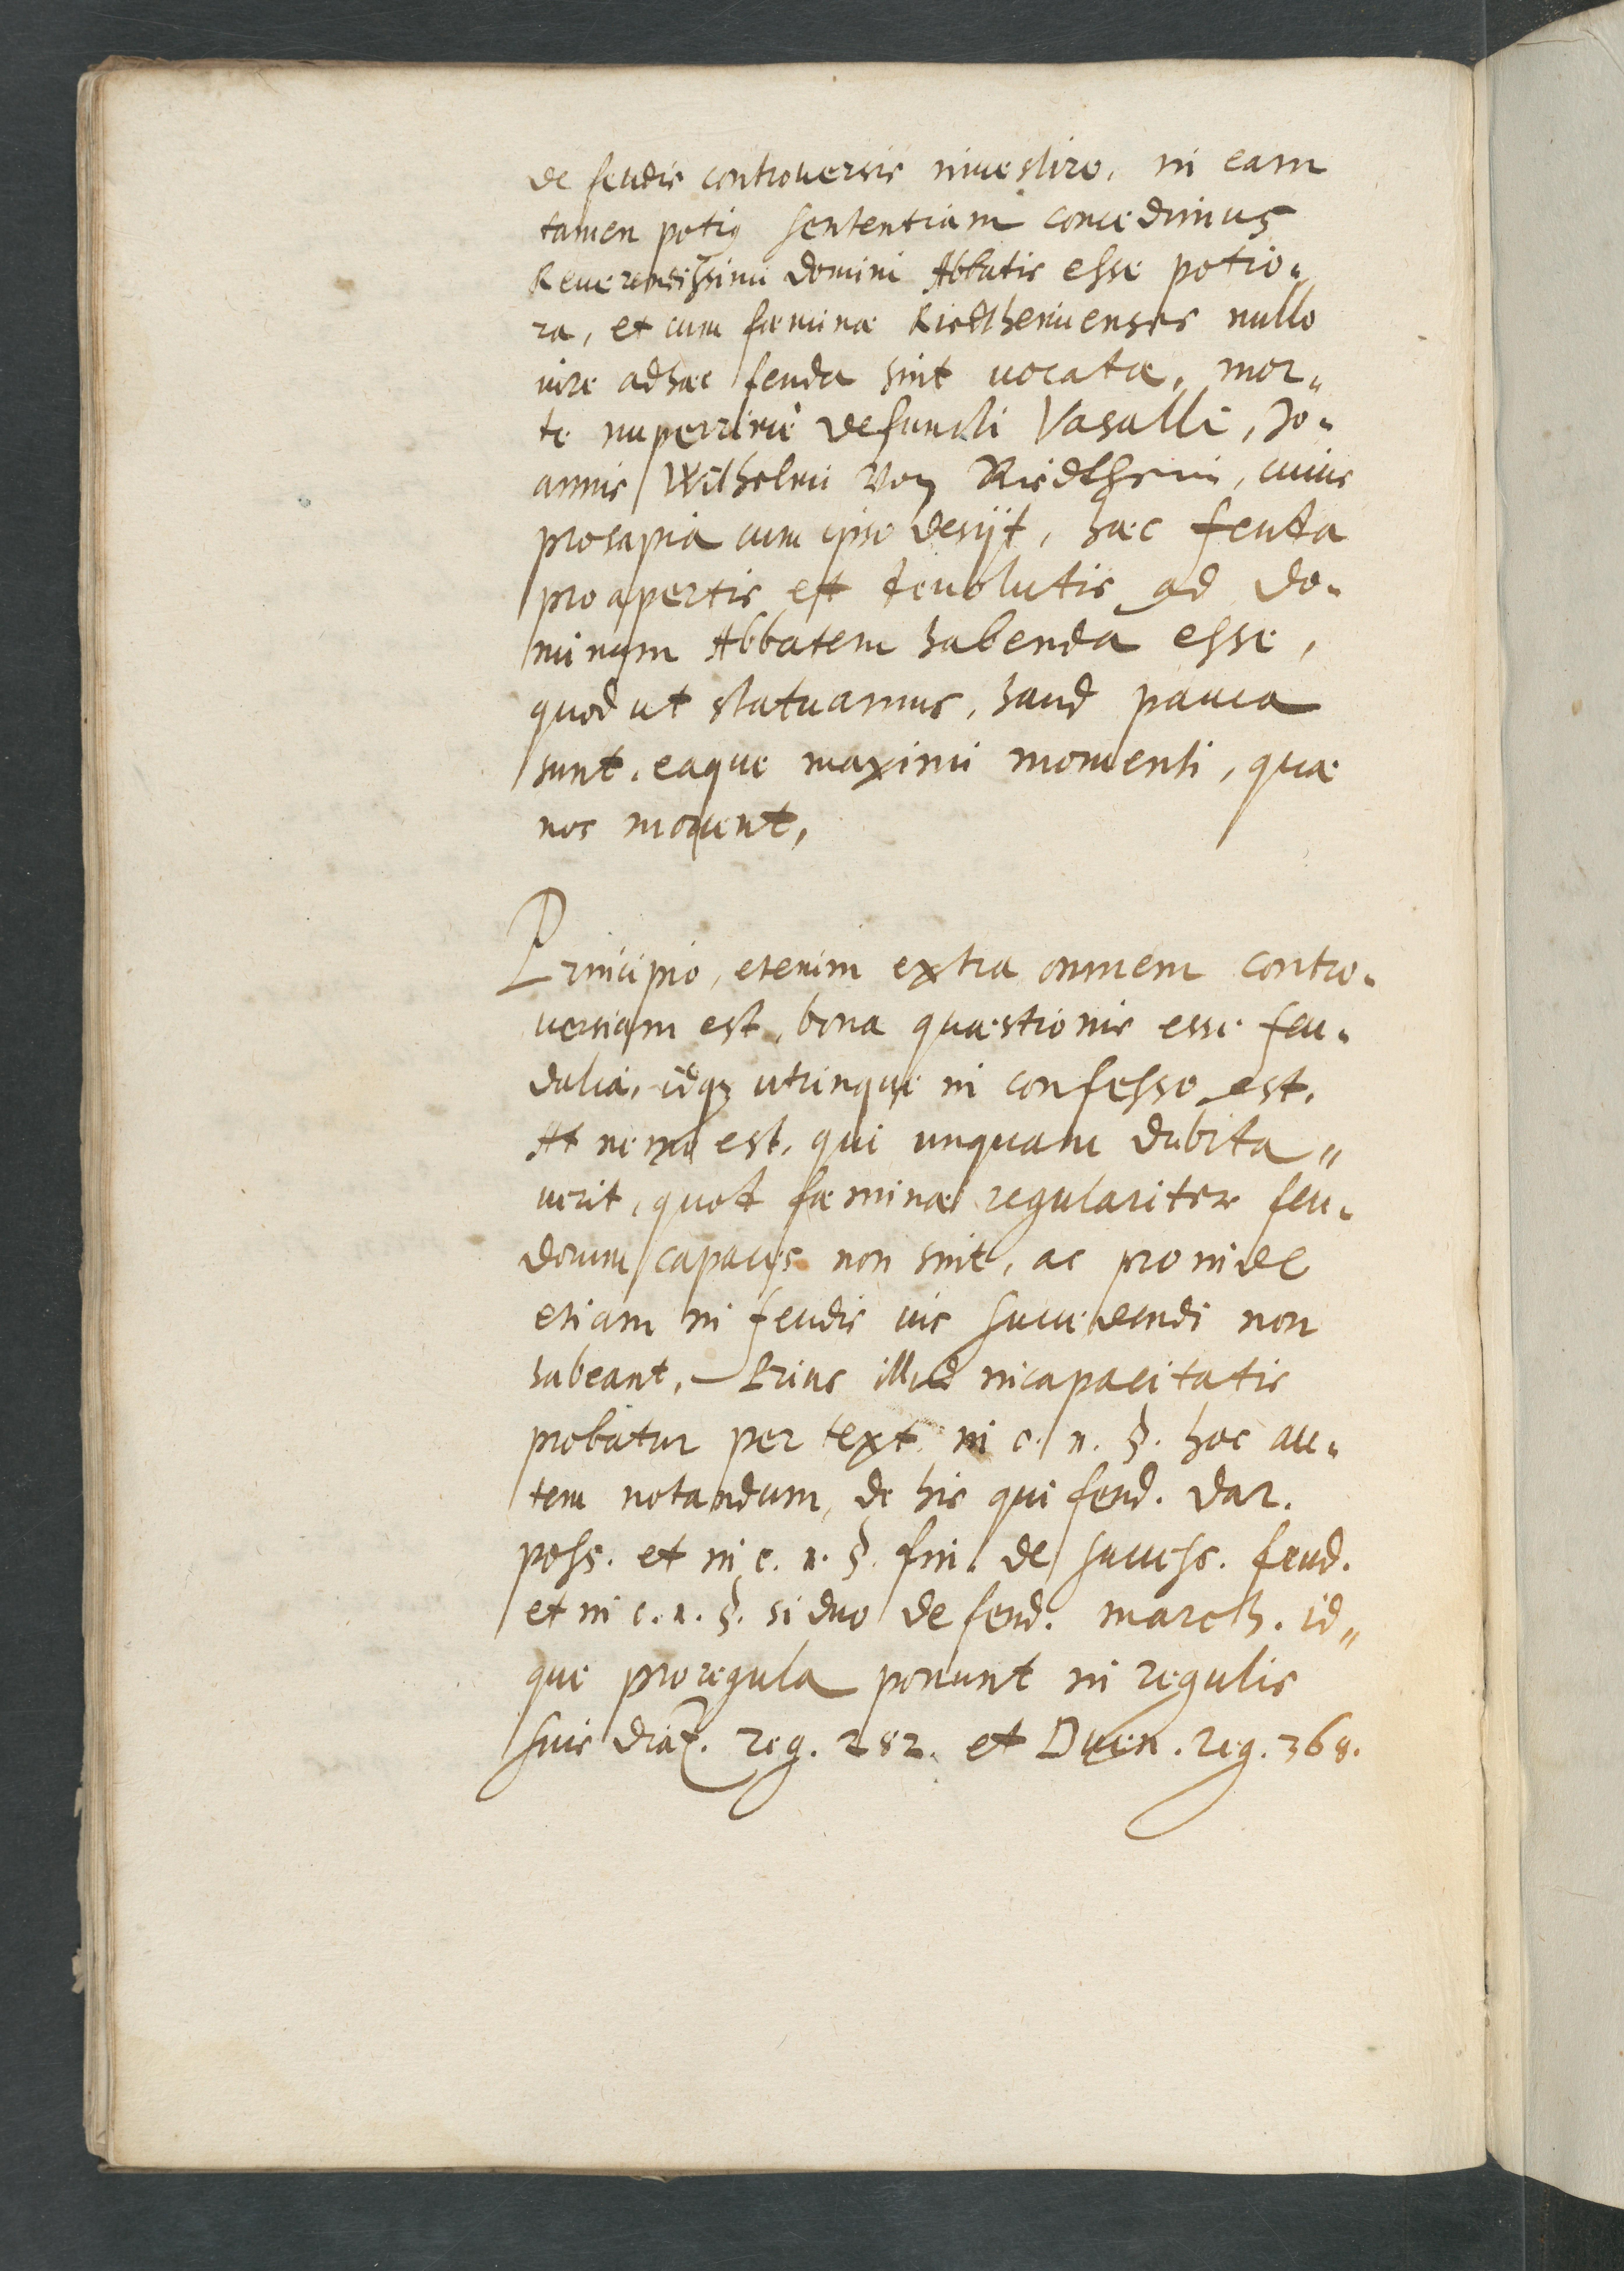 de feudis controversis investire, in eam
tamen potius sententiam concedimus
Reuerendissimi domini Abbatis esse potio-
ra, et cum fæminæ Riedtheimenses nullo
iure ad hæc feuda sint uocatæ, mor-
te nuperrimè defuncti Vasalli, Jo-
annis Wilhelmi Von Riedtheim, cuius
prosapia cum ipso desijt, hæc feuda
pro apertis et deuolutis ad do-
minum Abbatem habenda esse,
quod ut statuamus, haud pauca
sunt, eaque maximi momenti, quæ
nos mouent,
Principio, etenim extra omnem contro-
uersiam est, bona quæstionis esse feu-
dalia, idqꝫ utrinque in confesso est.
At nemo est, qui unquam dubita-
uerit, quod fæminæ regulariter feu-
dorum capaces non sint, ac proinde
etiam in feudis ius succedendi non
habeant, Prius illud incapacitatis
probatur per text. in c. 1. §. hoc au-
tem notandum, de his qui feud. dar.
poss. et in c. 1. §. fin. de success. feud.
et in c. 1. §. si duo de feud. march. id-
que pro regula ponunt in regulis
suis Diaz. reg. 282. et Duen. reg. 368.